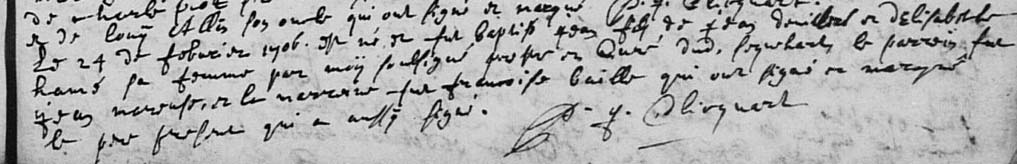 et de louy Allis son oncle qui ont signé et marqué P. f. Clicquart
Le 24 de feburier 1706. est né et fut baptisé jean fils de jean devillers et delisabethe
hamé sa femme par moy soussigné prestre et Curé dud. le parrein fut
jean et la marraine fut francoise baille qui ont signé et marqué
le pere present qui a aussy signé.
P. f. Clicquart